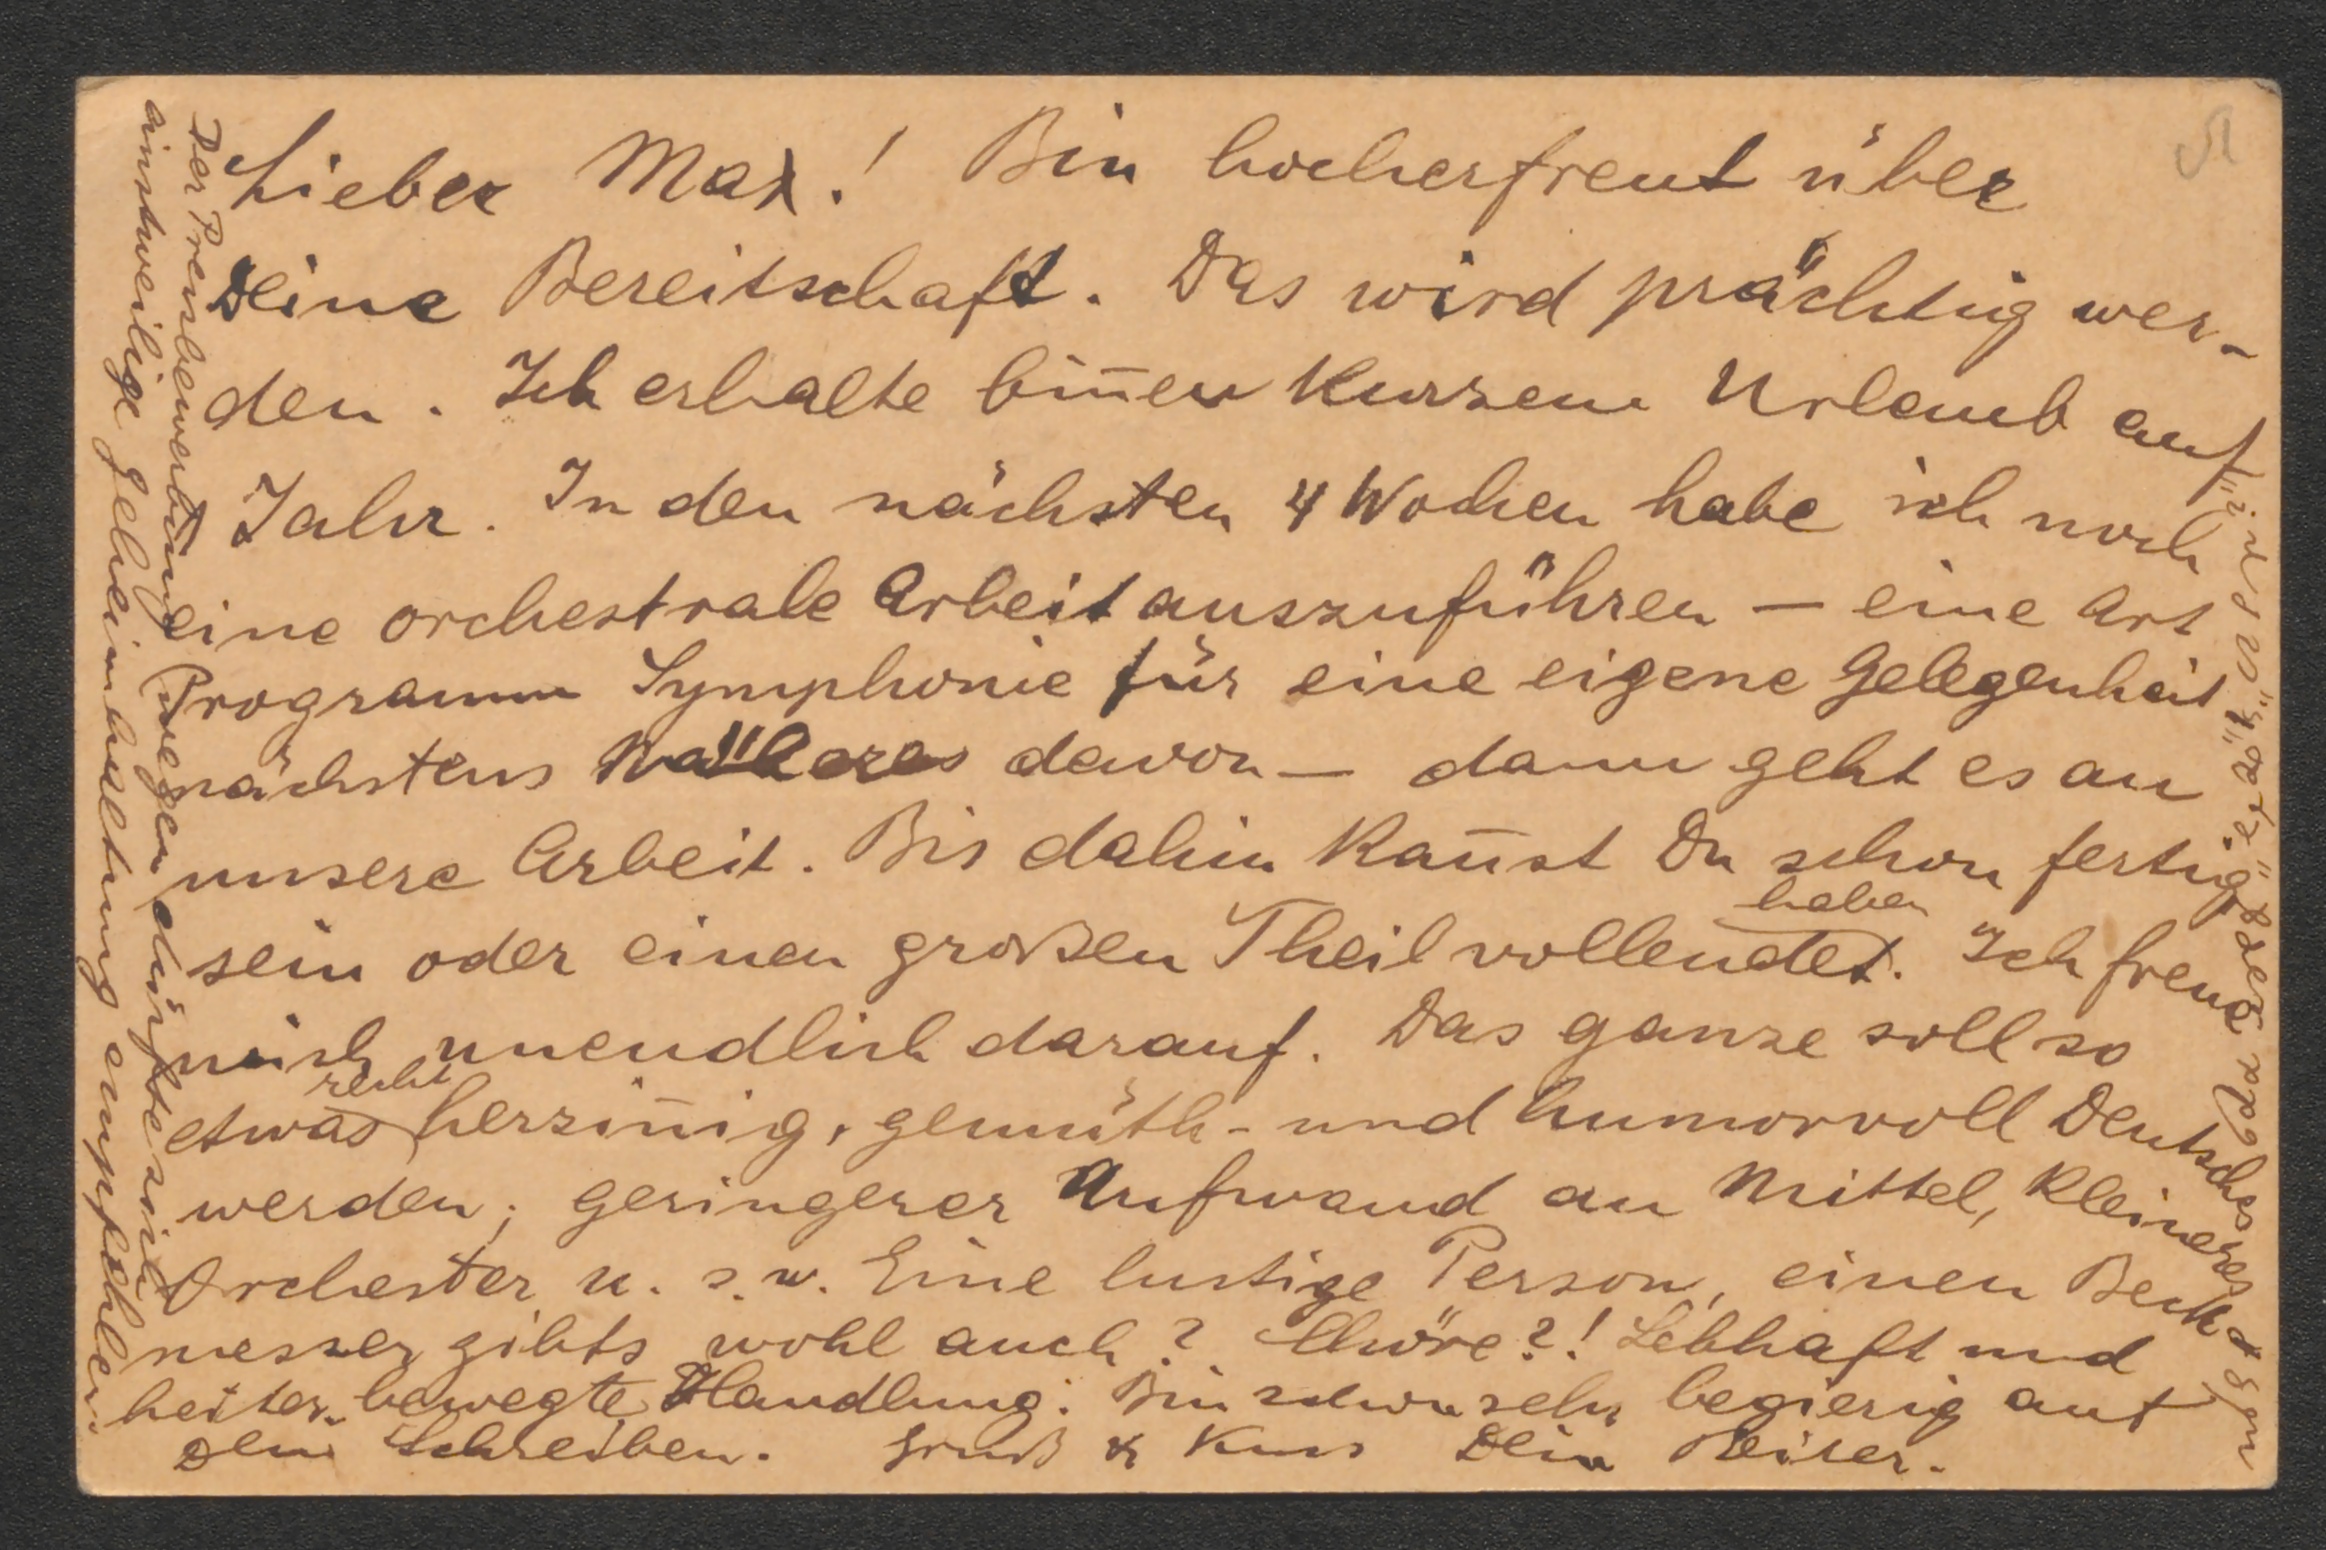 Lieber Max! Bin hocherfreut über
Deine Bereitschaft. Das wird prächtig wer-
den. Ich erhalte bin̄en Kurzem Urlaub auf
Jahr. In den nächsten 4 Wochen habe ich noch
eine orchestrale Arbeit auszuführen — eine Art
Programm Symphonie für eine eigene Gelegenheit
nächstens Näheres davon — dann geht es an
unsere Arbeit. Bis dahin kan̄st Du schon fertig
sein oder einen großen Theil vollendet haben. Ich freue
mich unendlich darauf. Das ganze soll so
etwas recht herzin̄ig, gemüth- und humorvoll Deutsches
werden; geringerer Aufwand an Mittel, kleineres
Orchester u. s. w. Eine lustige Person, einen Beck
messer gibts wohl auch? Chöre?! Lebhaft und
heiter bewegte Handlung. Bin schon sehr begierig auf
Dein Schreiben. Gruß & Kuss Dein Reiter.
Der Preisbewerbung wegen dürfte sich
einstweilige Geheimhaltung empfehlen.